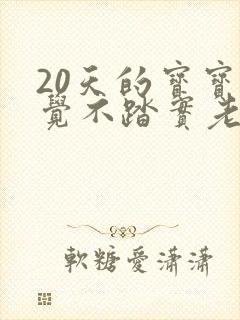 20天的寶寶
覺不踏實老
軟糖愛瀟瀟